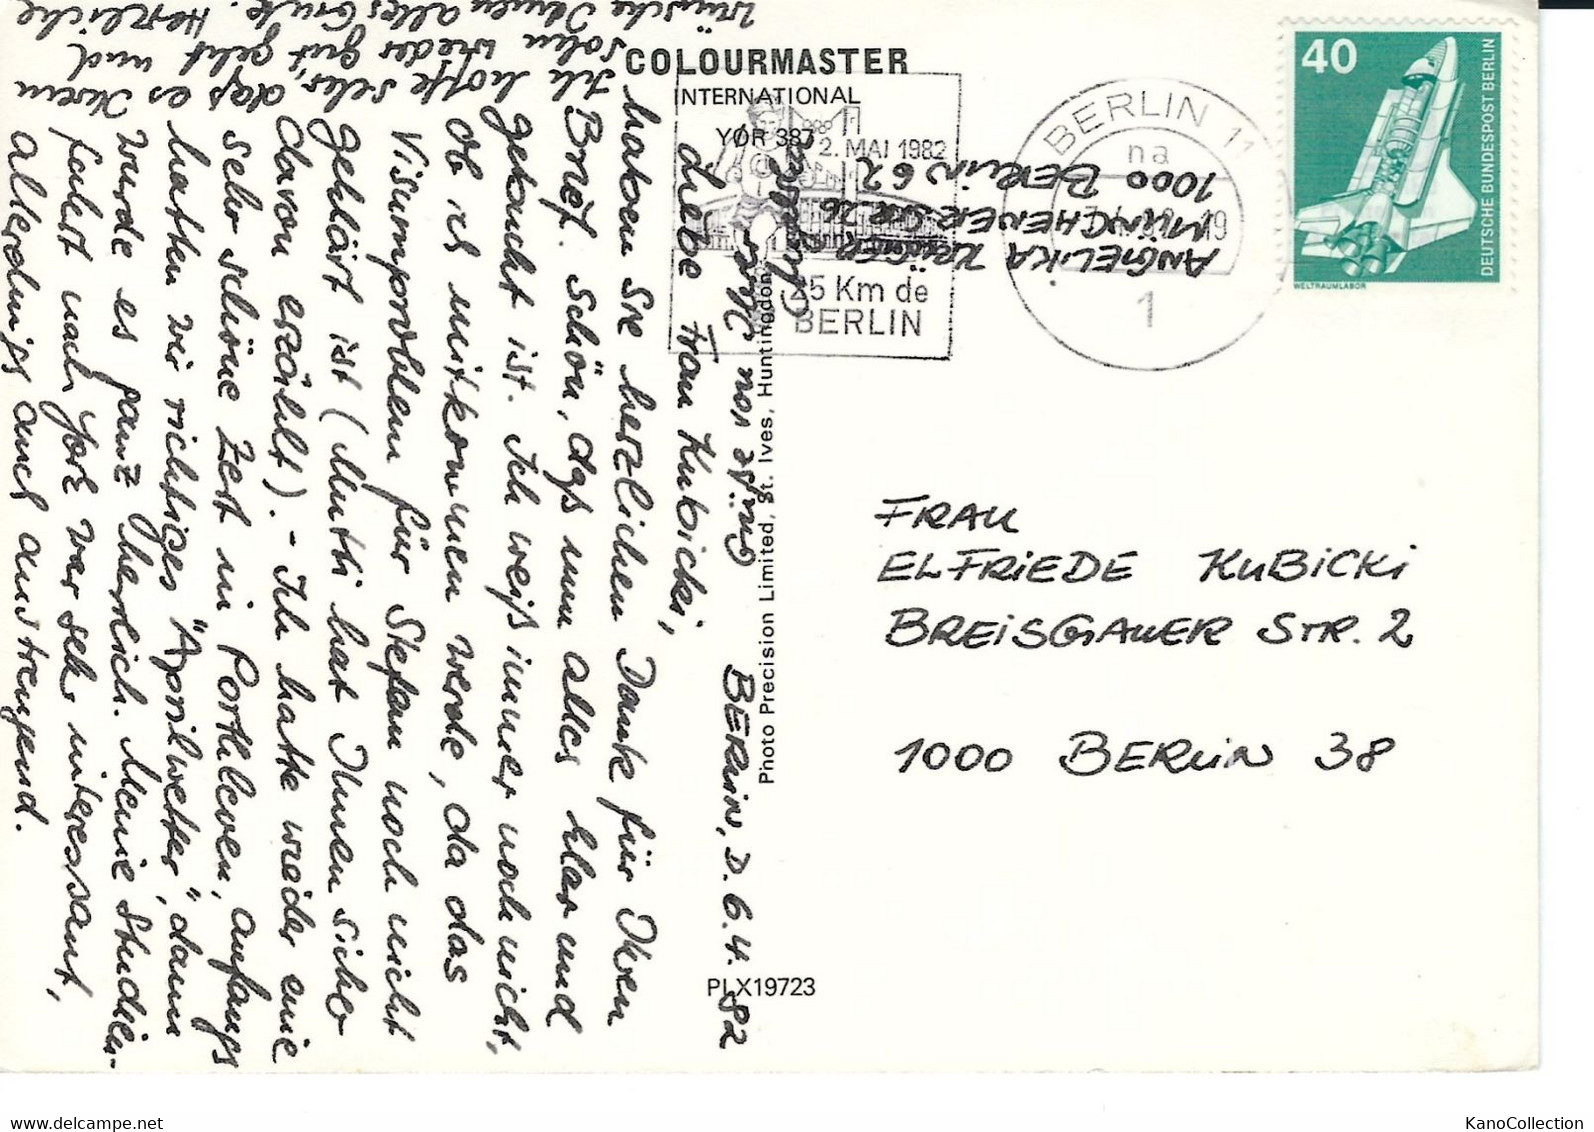 COLOURMASTER
INTERNATIONAL
YOR 387
2. MAI 1982
25 Km de
BERLIN
BERLIN 11
na
19
1
40
DEUTSCHE BUNDESPOST BERLIN
WELTRAUMLABOR
ANGELIKA KRÜGER
MÜNCHENER STR. 26
1000 BERLIN 62
FRAU
ELFRIEDE KUBICKI
BREISGAUER STR. 2
1000 BERLIN 38
Photo Precision Limited, St. Ives, Huntingdon
PLX19723
BERLIN, D. 6.4.82
Liebe Frau Kubicki,
haben Sie herzlichen Dank für Ihren
Brief. Schön, daß nun alles klar und
gebucht ist. Ich weiß immer noch nicht,
ob ich mitkommen werde, da das
Visumproblem für Stefan noch nicht
geklärt ist (Mutti hat Ihnen sicher
davon erzählt). - Ich hatte wieder eine
sehr schöne Zeit in Porthleven, anfangs
hatten wir richtiges "Aprilwetter", dann
wurde es ganz herrlich. Meine Studien-
fahrt nach York war sehr interessant,
allerdings auch anstrengend.
Ich hoffe sehr, daß es Ihrem
Sohn wieder gut geht und
wünsche Ihnen alles Gute. Herzliche
Grüße von Ihrer